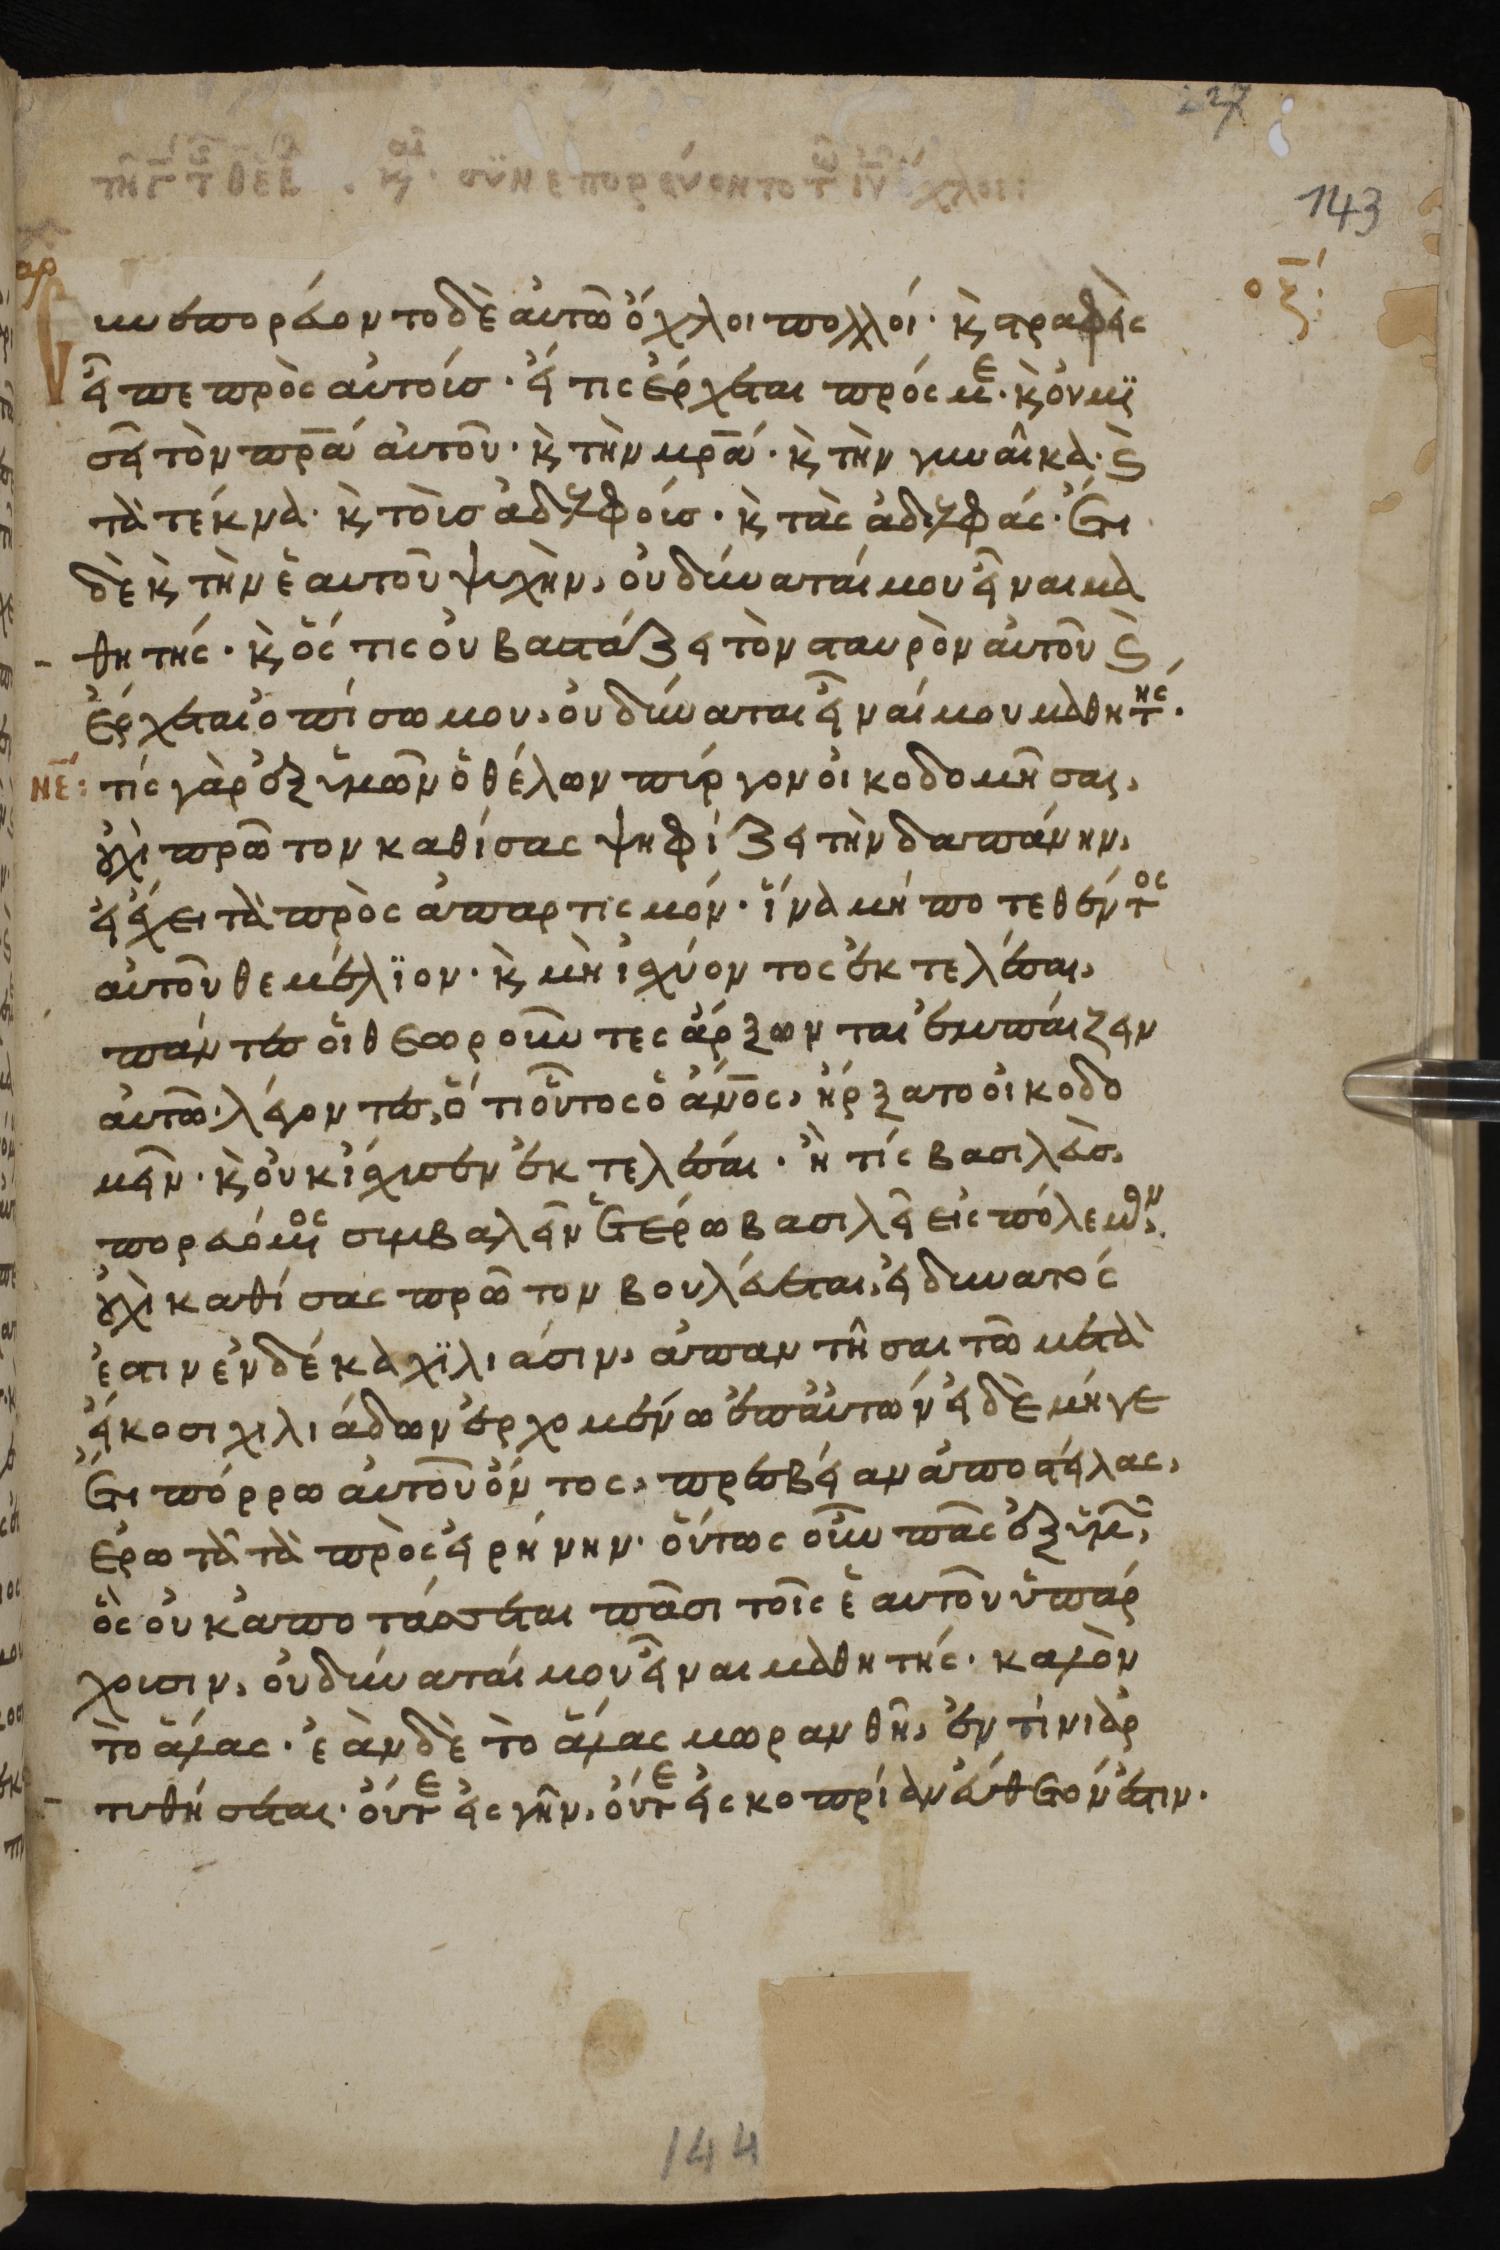 227
143
συνεπορεύοντο
ὄχλοι:
αρ
οξ:
υνεπορεύοντο δὲ αὐτῶ ὄχλοι πολλοί· κ̀ στραφεὶς
εἶπε πρὸς αὐτούσ· εἴ τις ἔρχεται πρός με· κ̀ οὐ μι
σεῖ τὸν πρ̅α αὐτοῦ· κ̀ τὴν μρ̅α· κ̀ τὴν γυναῖκα· κ̀
τὰ τέκνα· κ̀ τοὺσ ἀδελφούσ· κ̀ τὰς ἀδελφάς· ἔτι
δὲ κ̀ τὴν ἑαυτοῦ ψυχὴν, οὐ δύναταί μου εἶναι μα
θητής· κ̀ ὅστις οὐ βαστάζει τὸν σταυρὸν αὐτοῦ κ̀
ἔρχεται ὀπίσω μου, οὐ δύναται εἶναί μου μαθητής·
νε: τίς γὰρ ἐξ ὑμῶν ὁ θέλων πύργον οἰκοδομῆσαι,
οὐχὶ πρῶτον καθίσας ψηφίζει τὴν δαπάνην,
εἰ ἔχει τὰ πρὸς ἀπαρτισμόν· ἵνα μή ποτε θέντος
αὐτοῦ θεμέλϊον· κ̀ μὴ ἰσχύοντος ἐκτελέσαι,
πάντεσ οἱ θεωροῦντες ἄρξωνται ἐμπαίζειν
αὐτῶ· λέγοντεσ, ὅτι οὗτος ὁ ἄν̅ος, ἤρξατο οἰκοδο
μεῖν· κ̀ οὐκ ἴσχυσεν ἐκτελέσαι· ἢ τίς βασιλεὺσ,
πορευόμενος συμβαλεῖν ἑτέρω βασιλεῖ εἰς πόλεμον,
οὐχὶ καθίσας πρῶτον βουλεύεται, εἰ δυνατός
ἐστιν ἐν δέκα χϊλιάσιν, ἀπαντῆσαι τῶ μετὰ
εἴκοσι χιλιάδων ἐρχομένω ἐπ' αὐτών εἰ δὲ μήγε
ἔτι πόρρω αὐτοῦ ὄντος, πρεσβείαν ἀποστείλας,
ἐρωτᾶ τὰ πρὸς εἰρήνην· οὕτως οὖν πᾶς ἐξ ὑμῶν,
ὃς οὐκ ἀποτάσσεται πᾶσι τοῖς ἑαυτοῦ ὑπάρ
χουσιν, οὐ δύναταί μου εἶναι μαθητής· καλὸν
τὸ ἅλας· ἐὰν δὲ τὸ ἅλας μωρανθῆ, ἐν τίνι ἀρ
τυθήσεται· οὔτε εἰς γῆν, οὔτε εἰς κοπρίαν εὔθετόν ἐστιν·
144